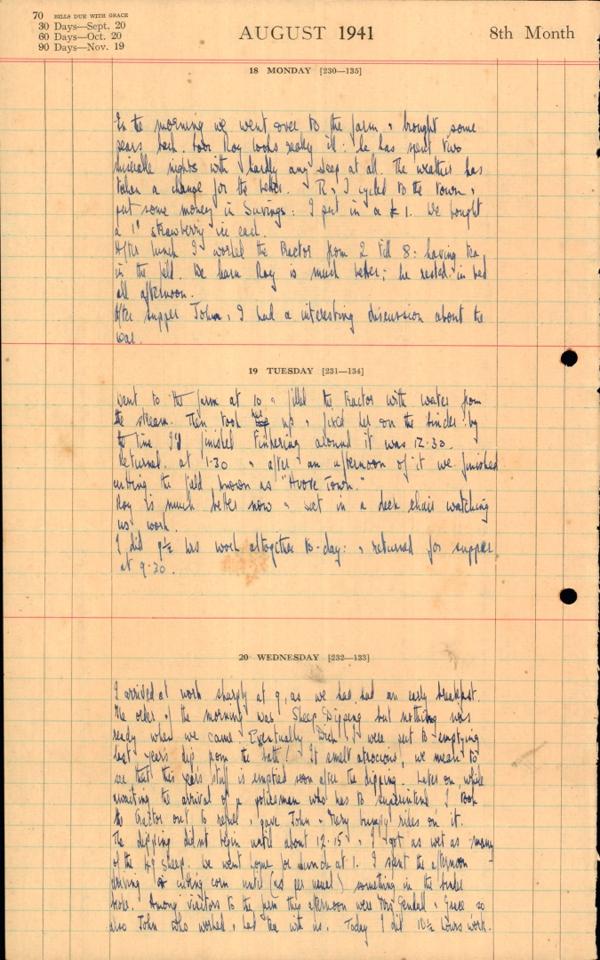 70 BILLS DUE WITH GRACE
30 Days—Sept. 20
60 Days—Oct. 20
90 Days—Nov. 19
AUGUST 1941
8th Month
18 MONDAY [230—135]
In the morning we went over to the farm & brought some
pears back. Poor Roy looks really ill: he has spent two
miserable nights with hardly any sleep at all. The weather has
taken a change for the better. R & I cycled to the town &
put some money in Savings: I put in a £1. We bought
a 1d strawberry ice each.
After lunch I worked the tractor from 2 till 8: having tea
in the field. We learn Roy is much better; he rested in bed
all afternoon.
After supper John & I had a interesting discussion about the
war.
19 TUESDAY [231—134]
Went to the farm at 10 & filled the tractor with water from
the stream. Then took her up & fixed her on the binder: by
the time I'd finished around it was 12.30.
Returned at 1.30 & after an afternoon of it we finished
cutting the field known as "Town."
Roy is much better now & sat in a deck chair watching
us work.
I did 9½ hrs work altogether to-day: & returned for supper
at 9.30.
20 WEDNESDAY [232—133]
I arrived at work sharply at 9, as we had had an early breakfast.
The order of the morning was Sheep Dipping but nothing was
ready when we came. Eventually & I were put to emptying
last years dip from the bath! It smelt atrocious, we mean to
see that this years stuff is emptied soon after the dipping. Later on, while
awaiting the arrival of a policeman who has to superintend I took
the tractor out to refuel & gave John a very bumpy rides on it.
The dipping did not begin until about 12.15 & I got as wet as many
of the sheep. We went home for lunch at 1. I spent the afternoon
driving & cutting corn until (as per usual) something in the binder
broke. Among visitors to the farm this afternoon were & Grace so
also John who worked & had tea with us. Today I did 10½ hours work.